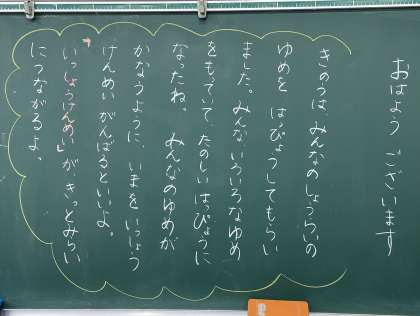 おはよう ございます
きのうは、みんなのしょうらいの
ゆめを はぴょうしてもらい
ました。みんな、いろいろなゆめ
をもていて、たのしいはっぴょうに
なったね。 みんなのゆめが
かなうように、いまを いっしょう
けんめい がんばるといいよ。
「いっしょうけんめい」が、きっとみらい
につながるよ。